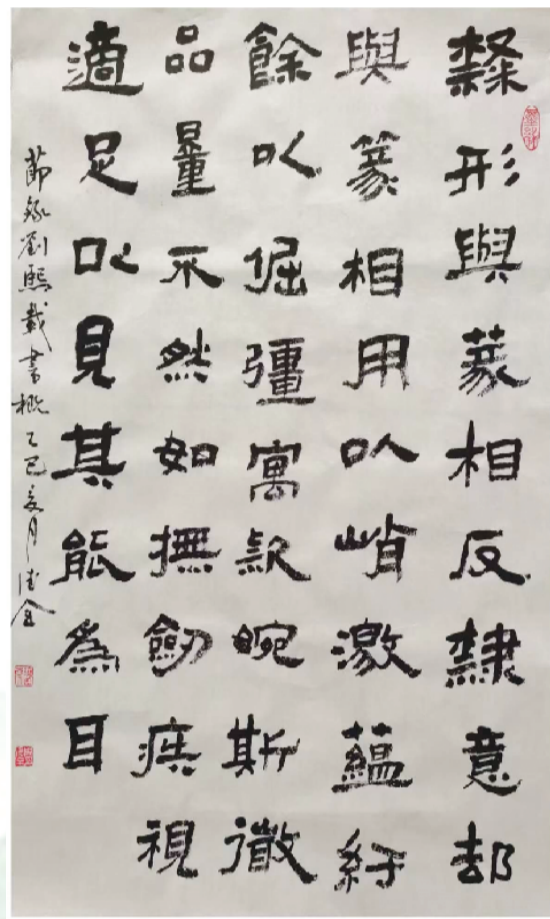 隸形與篆相反隸意却
與篆相用以峭激蘊紆
餘以倔彊寓款婉斯徵
品量不然如撫劍疾視
適足以見其能為目
節錄劉熙載書概乙巳夏月